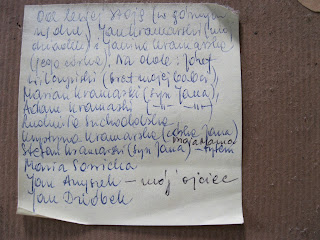 Od lewej stoją (w górnym
rzędzie) Jan Kramarski (mój
dziadek) i Janina Kramarska
(jego córka). Na dole: Józef
(brat mojej babci)
Marian Kramarski (syn Jana)
Adam Kramarski —"— —"—
Ludmiła Suchodolska
Krystyna Kramarska (córka Jana)
moja Mama
Stefan Kramarski (syn Jana) – tyłem
Maria
Jan – mój ojciec
Jan